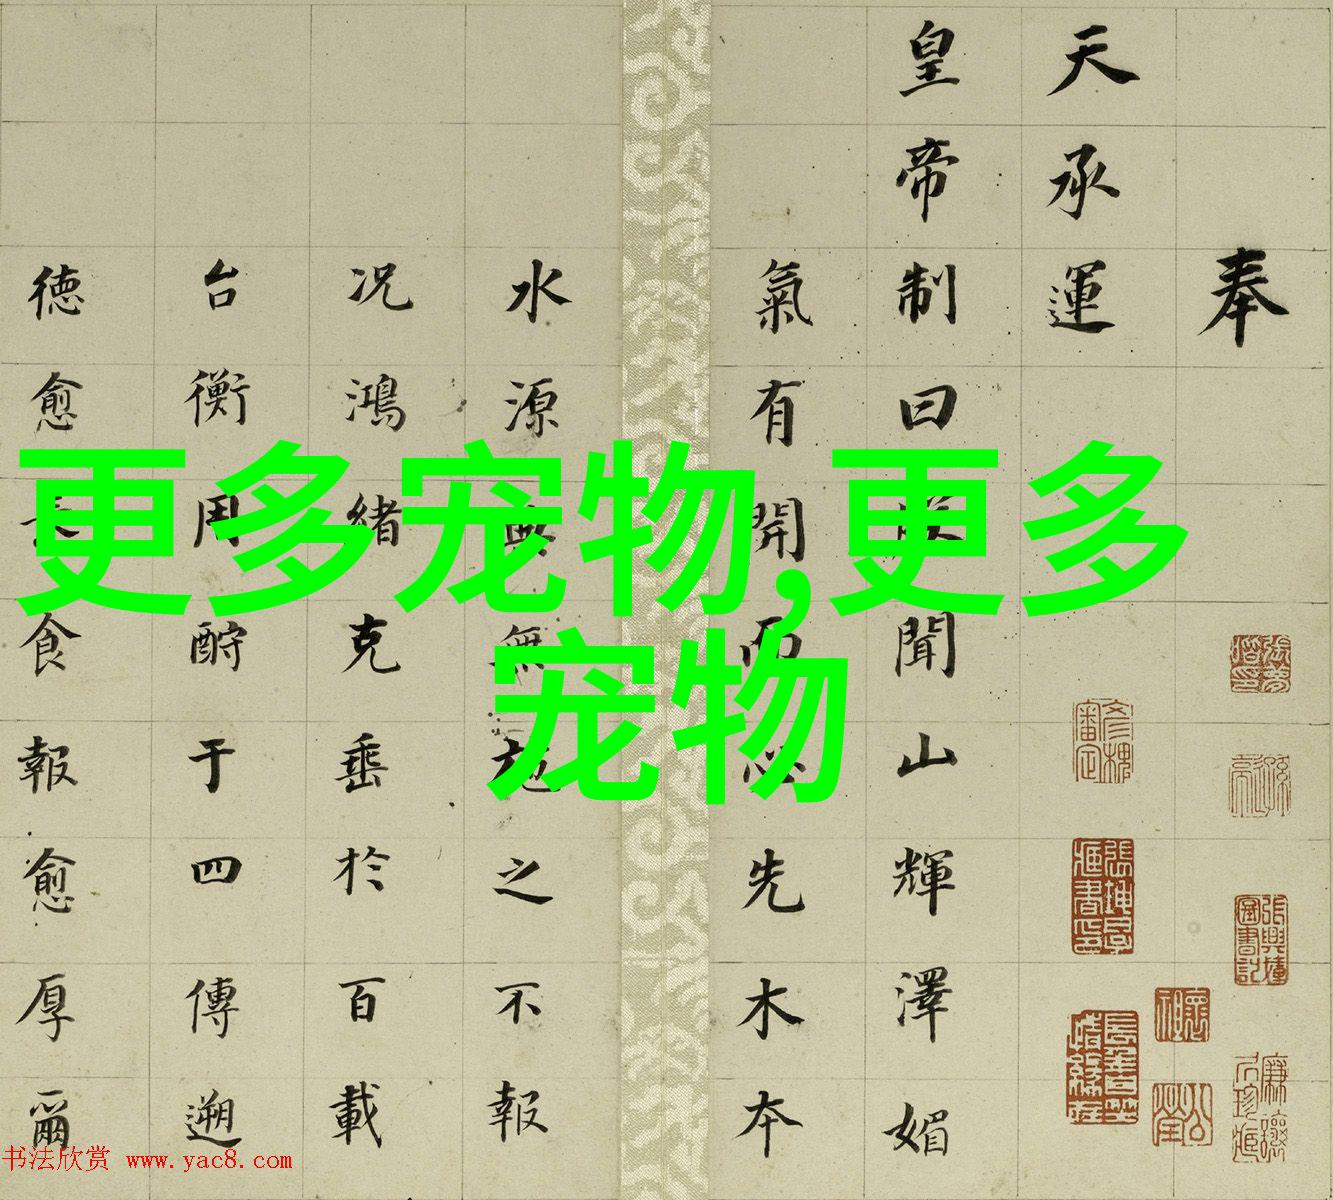 奉
天承運
皇帝制曰朕聞山輝澤媚
氣有開而必先木本
水源無施之不報
况鴻緒克垂於百載
台衡用酹于四傳遡
德愈食報愈厚爾
更多宠物,更多
宠物
书法欣赏 www.yac8.com